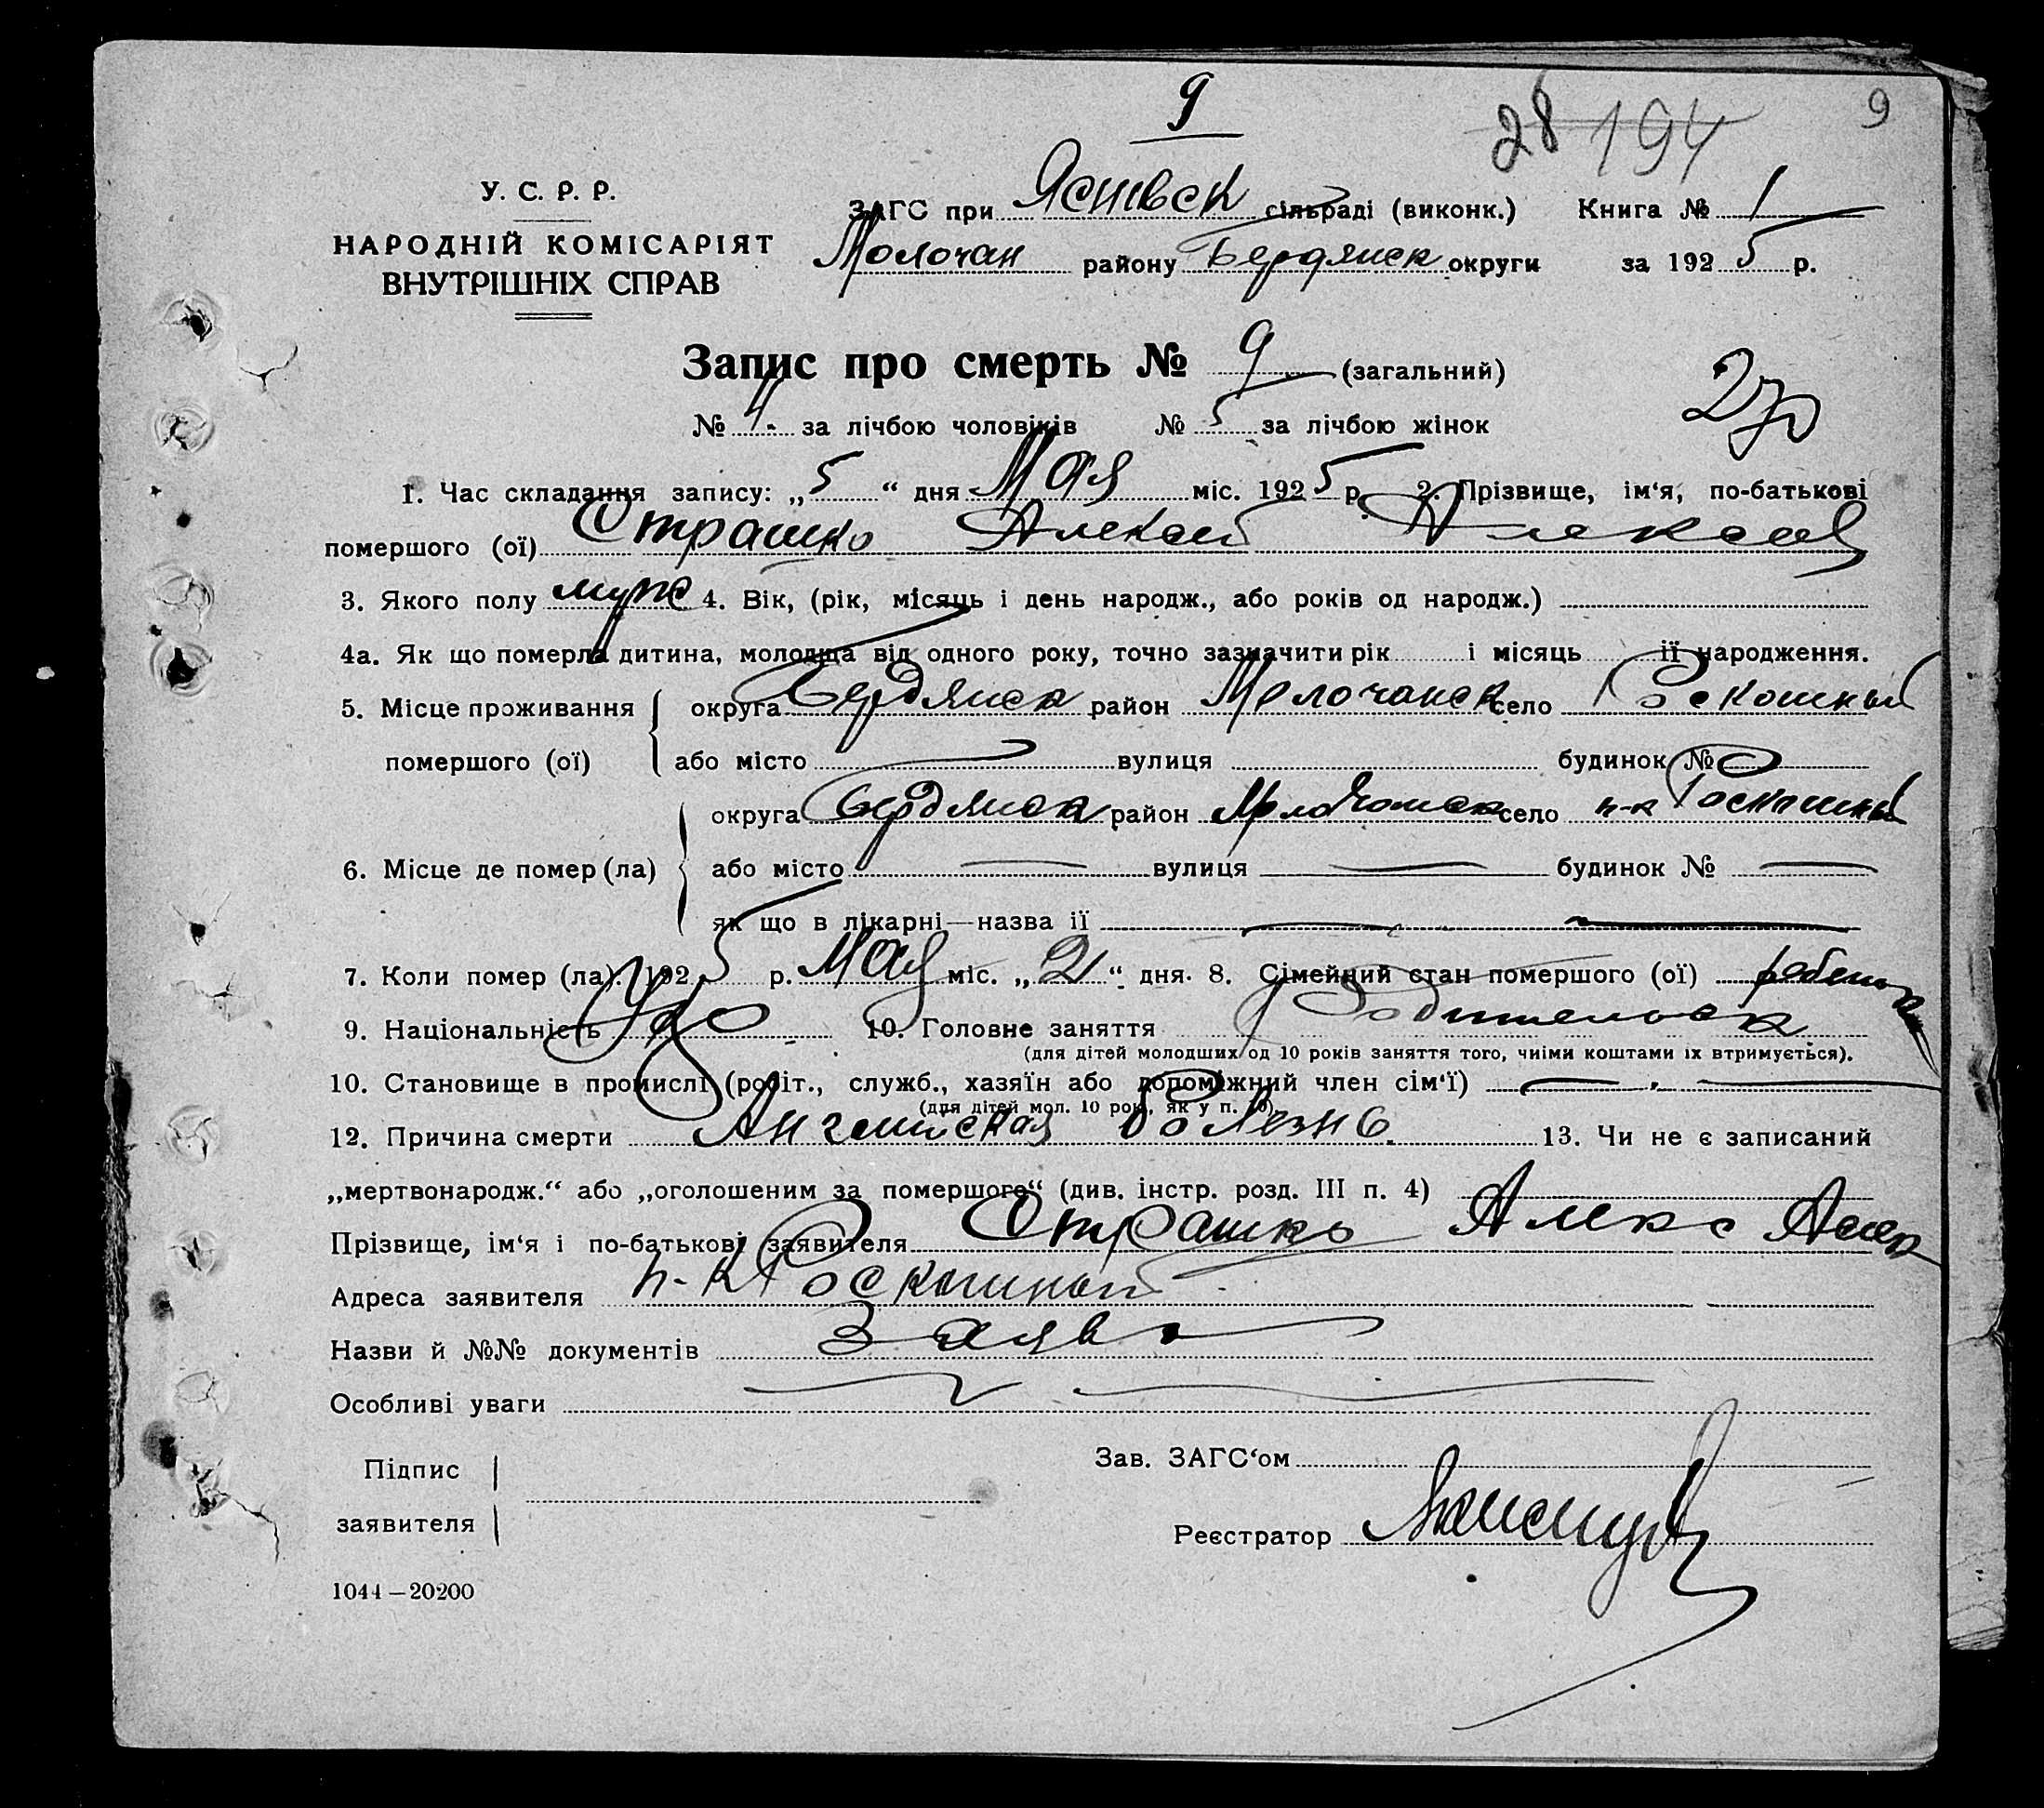 9
28 194 9
У. С. Р. Р.
НАРОДНІЙ КОМІСАРІЯТ
ВНУТРІШНІХ СПРАВ
ЗАГС при Яснівск сільраді (виконк.) Книга № 1
Молочан району Бердянск округи за 1925 р.
Запис про смерть № 9 (загальний)
№ 4 за лічбою чоловіків № 5 за лічбою жінок
1. Час складання запису: „5“ дня Мая міс. 1925 р. 2. Прізвище, ім‘я, по-батькові
помершого (ої) Страшко Алексей Алексеев
3. Якого полу муж 4. Вік, (рік, місяць і день народж., або років од народж.)
4а. Як що померла дитина, молодща від одного року, точно зазначити рік і місяць ії народження.
5. Місце проживання округа Бердянск район Молочанск село Роскошный
помершого (ої) або місто вулиця будинок №
округа Бердянск район Молочанск село п-к Роскошный
6. Місце де помер (ла) або місто вулиця будинок №
як що в лікарні—назва ії
7. Коли помер (ла). 1925 р. Мая міс. „2“ дня. 8. Сімейний стан помершого (ої) ребенок
9. Національність Укр 10. Головне заняття
(для дітей молодших од 10 років заняття того, чиїми коштами їх втримується).
10. Становище в промислі (робіт., служб., хазяїн або допоміжний член сім‘ї)
(для дітей мол. 10 рок., як у п. 10)
12. Причина смерти Английская болезнь. 13. Чи не є записаний
„мертвонародж.“ або „оголошеним за помершого“ (див. інстр. розд. III п. 4)
Прізвище, ім‘я і по-батькові заявителя Страшко Алекс Алек
Адреса заявителя п-к Роскошный
Назви й №№ документів Заява
Особливі уваги
Підпис
заявителя
Зав. ЗАГС‘ом
Реєстратор
1044—20200